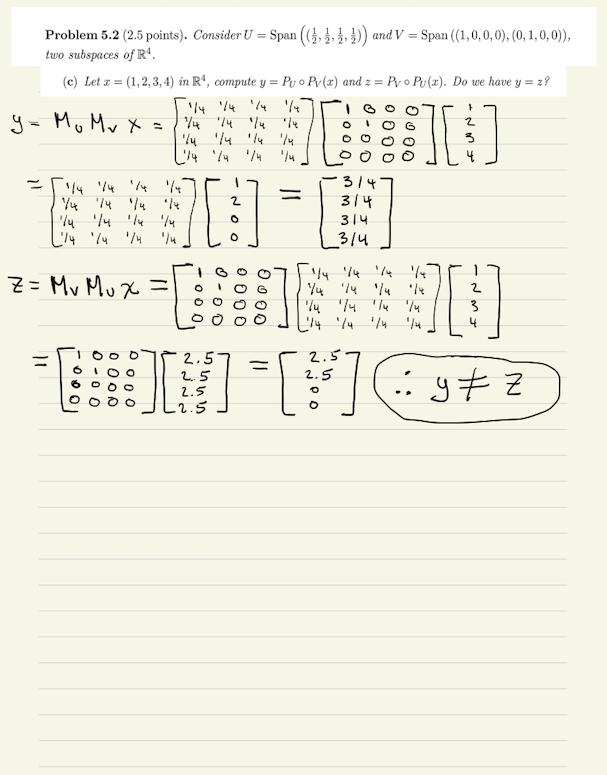 Problem 5.2 (2.5 points). Consider U = Span ((1/2, 1/2, 1/2, 1/2)) and V = Span ((1, 0, 0, 0), (0, 1, 0, 0)),
two subspaces of ℝ⁴.
(c) Let x = (1, 2, 3, 4) in ℝ⁴, compute y = P_U ∘ P_V(x) and z = P_V ∘ P_U(x). Do we have y = z?
y = M_U M_V x = [1/4 1/4 1/4 1/4; 1/4 1/4 1/4 1/4; 1/4 1/4 1/4 1/4; 1/4 1/4 1/4 1/4] [1 0 0 0; 0 1 0 0; 0 0 0 0; 0 0 0 0] [1; 2; 3; 4]
= [1/4 1/4 1/4 1/4; 1/4 1/4 1/4 1/4; 1/4 1/4 1/4 1/4; 1/4 1/4 1/4 1/4] [1; 2; 0; 0] = [3/4; 3/4; 3/4; 3/4]
z = M_V M_U x = [1 0 0 0; 0 1 0 0; 0 0 0 0; 0 0 0 0] [1/4 1/4 1/4 1/4; 1/4 1/4 1/4 1/4; 1/4 1/4 1/4 1/4; 1/4 1/4 1/4 1/4] [1; 2; 3; 4]
= [1 0 0 0; 0 1 0 0; 0 0 0 0; 0 0 0 0] [2.5; 2.5; 2.5; 2.5] = [2.5; 2.5; 0; 0] ∴ y ≠ z